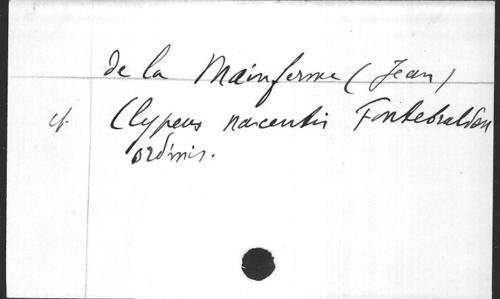 de la Mainferme (Jean)
cf. Clypeus nascentis Fontebraldens
ordinis.